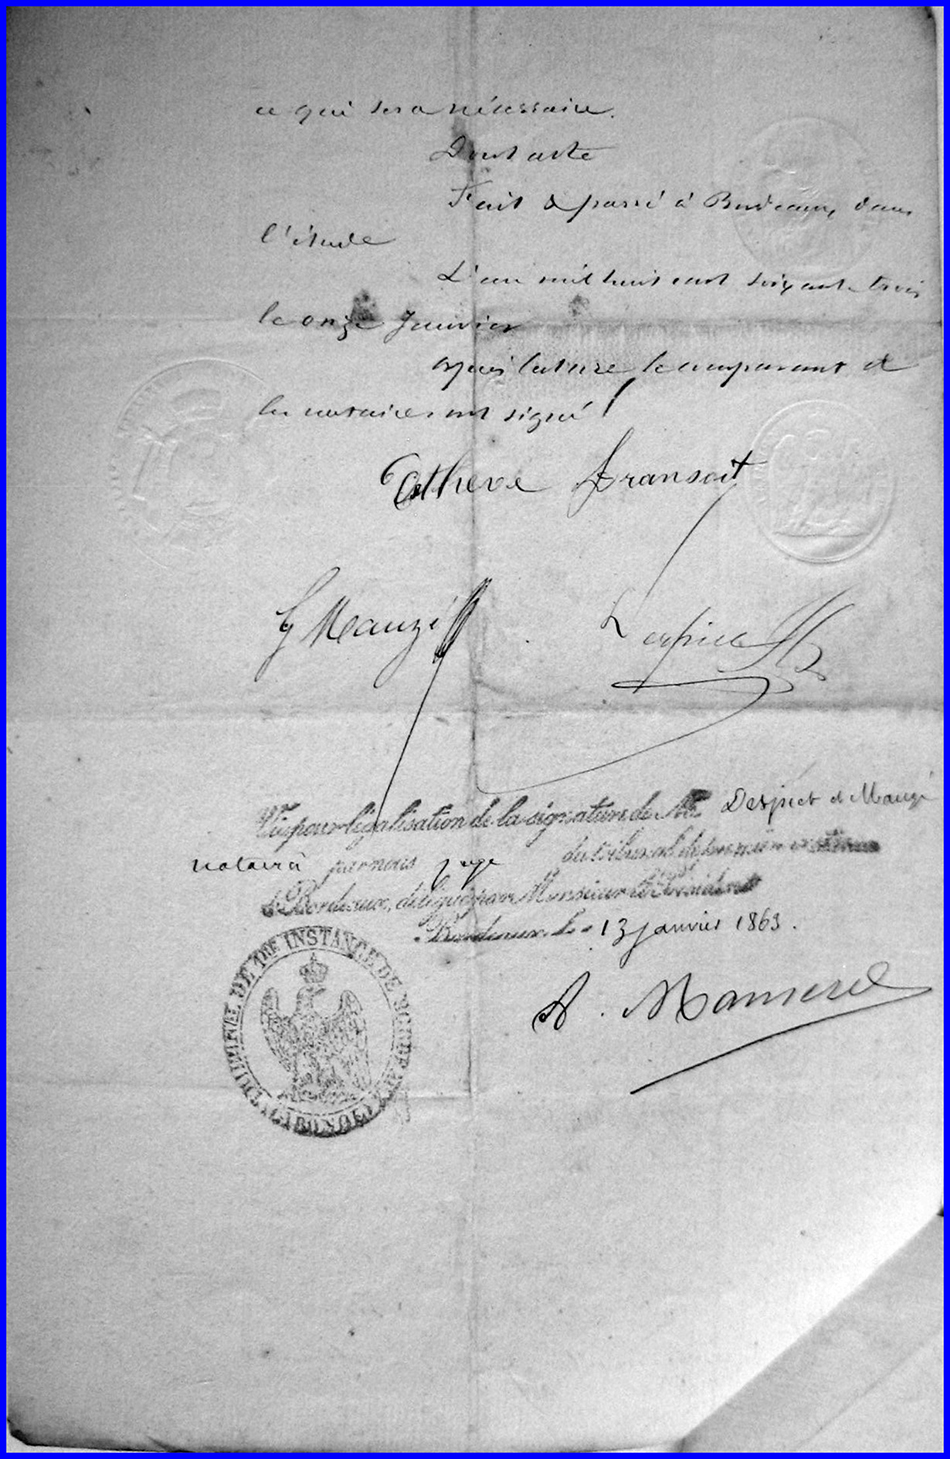 ce qui sera nécessaire.
Dont acte
Fait & passé à Bordeaux, dans
l'étude
L'an mil huit cent soixante trois
le onze Janvier
après lecture le comparant et
les notaires ont signé
Estheve fransoit
G Mauzé
Vu pour légalisation de la signature de Me Despiet et Mauzé
notaires par nous juge du tribunal de première instance
de Bordeaux, délégué par Monsieur le Président
Bordeaux, le 13 janvier 1863.
A. Mamerel
TRIBUNAL DE 1RE INSTANCE DE BORDEAUX